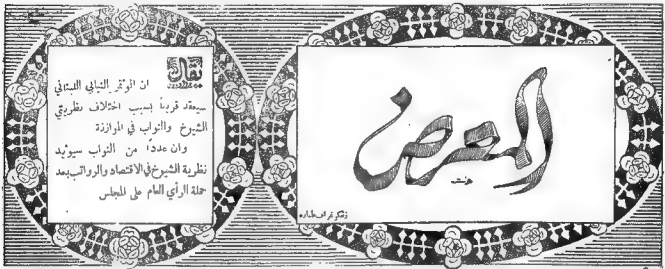 المعرض
يقال
ان المؤتمر النيابي اللبناني
سيعقد قريباً بسبب اختلاف نظريتي
الشيوخ والنواب في الموازنة
وان عدداً من النواب سيؤيد
نظرية الشيوخ في الاقتصاد والرواتب بعد
حملة الرأي العام على المجلس